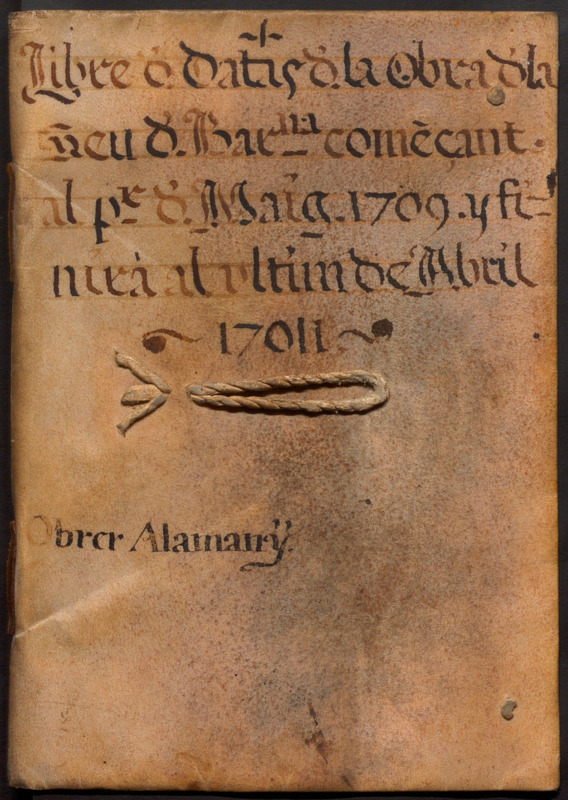 Libre d̄. Datas d̄. la Obra d̄ la
Seu d̄. Barna començant.
al pr d̄. Maig. 1709. y fi-
nirà al ultim de Abril
~ 17011 ~
Obrer Alamany.